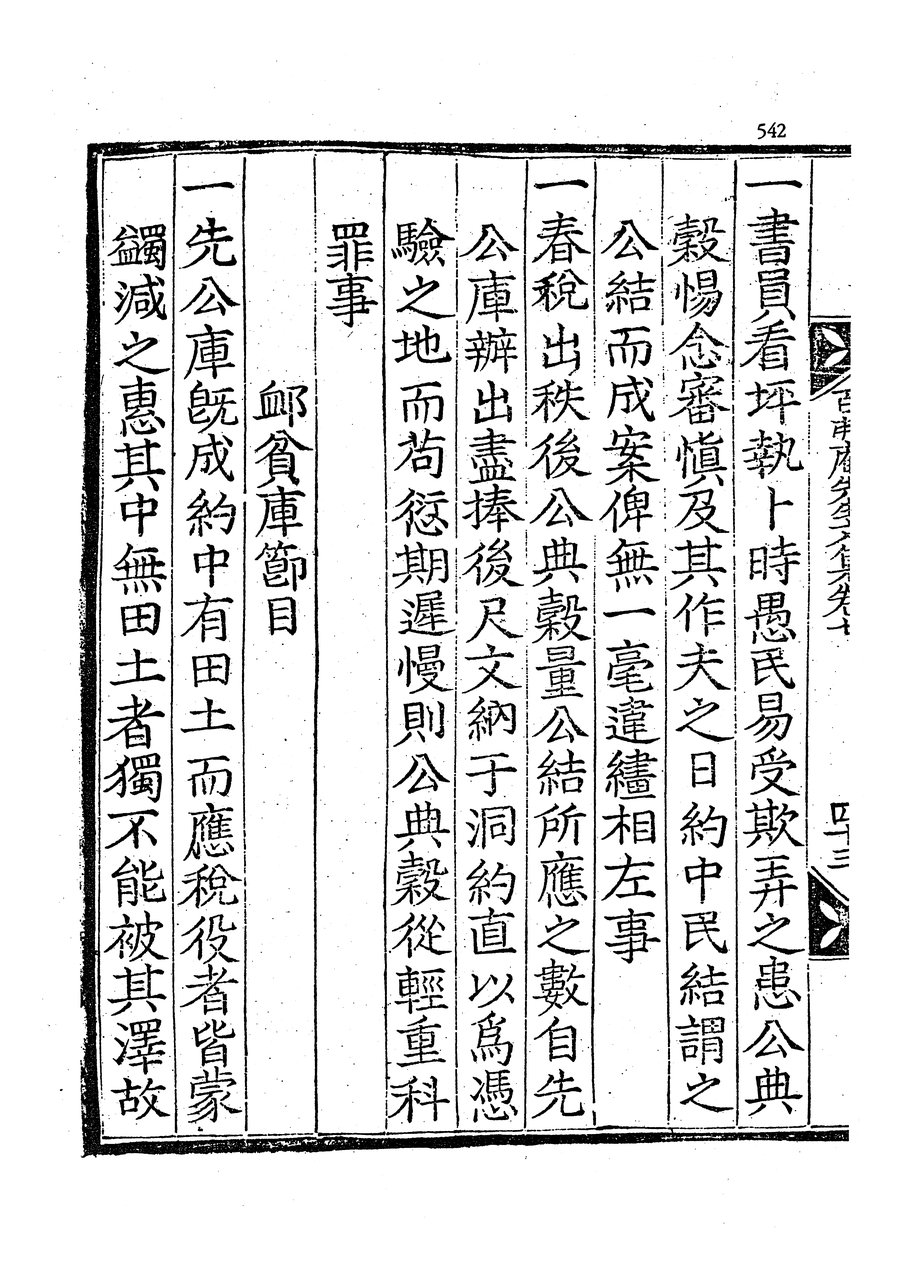 542
一書員看坪執卜時愚民易受欺弄之患公典
穀惕念審愼及其作夫之日約中民結謂之
公結而成案俾無一毫違繣相左事
一春稅出秩後公典穀量公結所應之數自先
公庫辦出盡捧後尺文納于洞約直以爲憑
驗之地而苟愆期遲慢則公典穀從輕重科
罪事
䘏貧庫節目
一先公庫旣成約中有田土而應稅役者皆蒙
蠲減之惠其中無田土者獨不能被其澤故
先生文集卷七
四十三